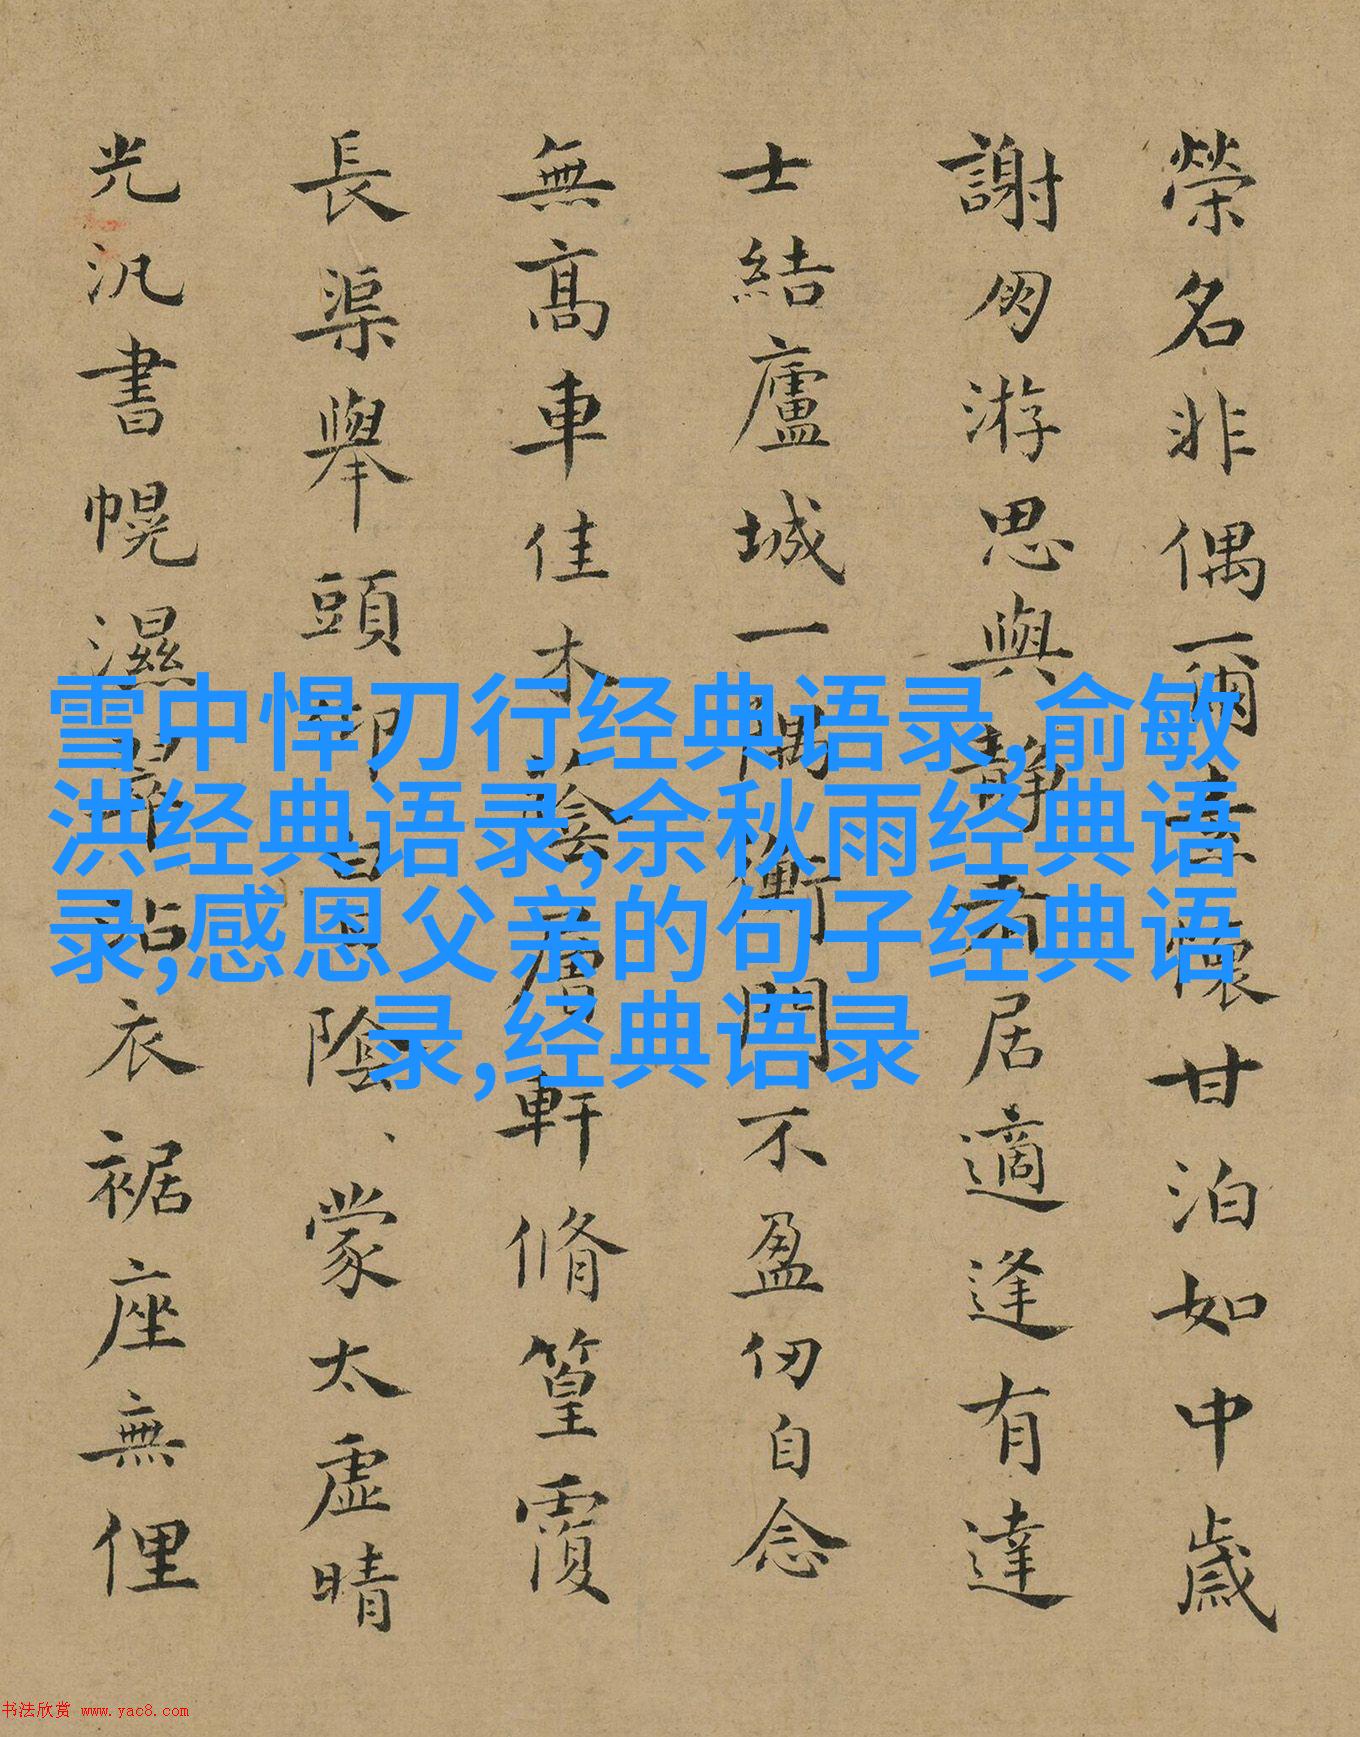 榮名非偶爾懷甘泊如中歲
謝朋游思與靜者居適逢有達
士結廬城一隅衡門不盈仞自念
無髙車佳木蔭層軒脩篁覆
長渠舉頭卻陰蒙太虛晴
光汎書幌濕翠沾衣裾座無俚
雪中悍刀行经典语录,俞敏
洪经典语录,余秋雨经典语
录,感恩父亲的句子经典语
录,经典语录
书法欣赏 www.yac8.com